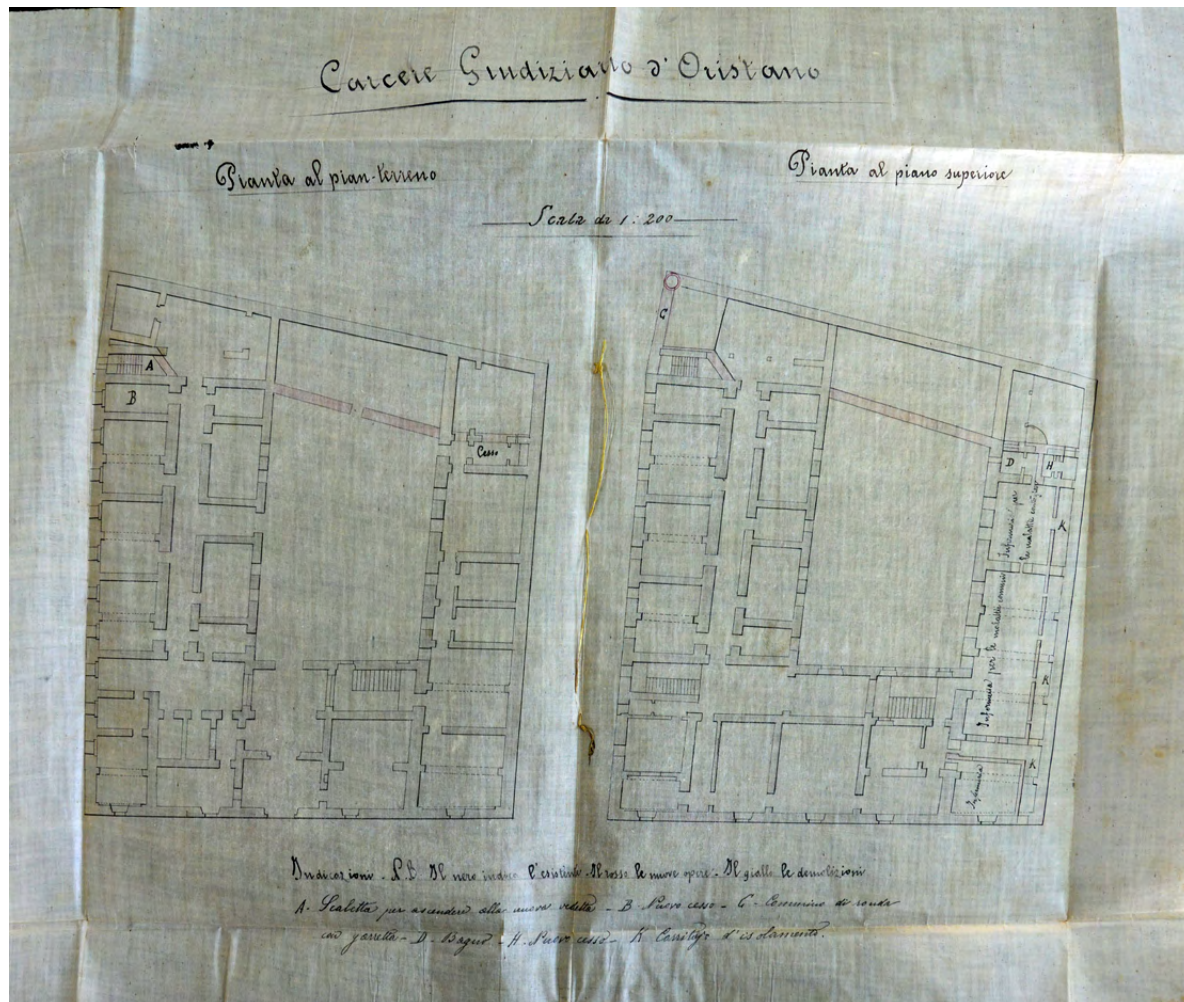 Carcere Giudiziario d'Oristano
Pianta al pian-terreno
Pianta al piano superiore
Scala di 1:200
A
B
Cesso
G
D
H
Infermeria per
le malattie contagiose
K
Infermeria per le malattie comuni
K
K
Infermeria
Indicazioni - N.B. Il nero indica l'esistente - Il rosso le nuove opere - Il giallo le demolizioni
A. Scaletta per ascendere alla nuova vedetta - B Nuovo cesso - G - Cammino di ronda
con garretta - D - Bagno - H - Nuovo cesso - K Corritojo d'isolamento.